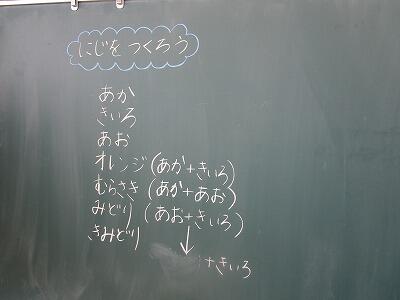 にじをつくろう
あか
きいろ
あお
オレンジ(あか+きいろ)
むらさき(あか+あお)
みどり(あお+きいろ)
きみどり
↓
+きいろ